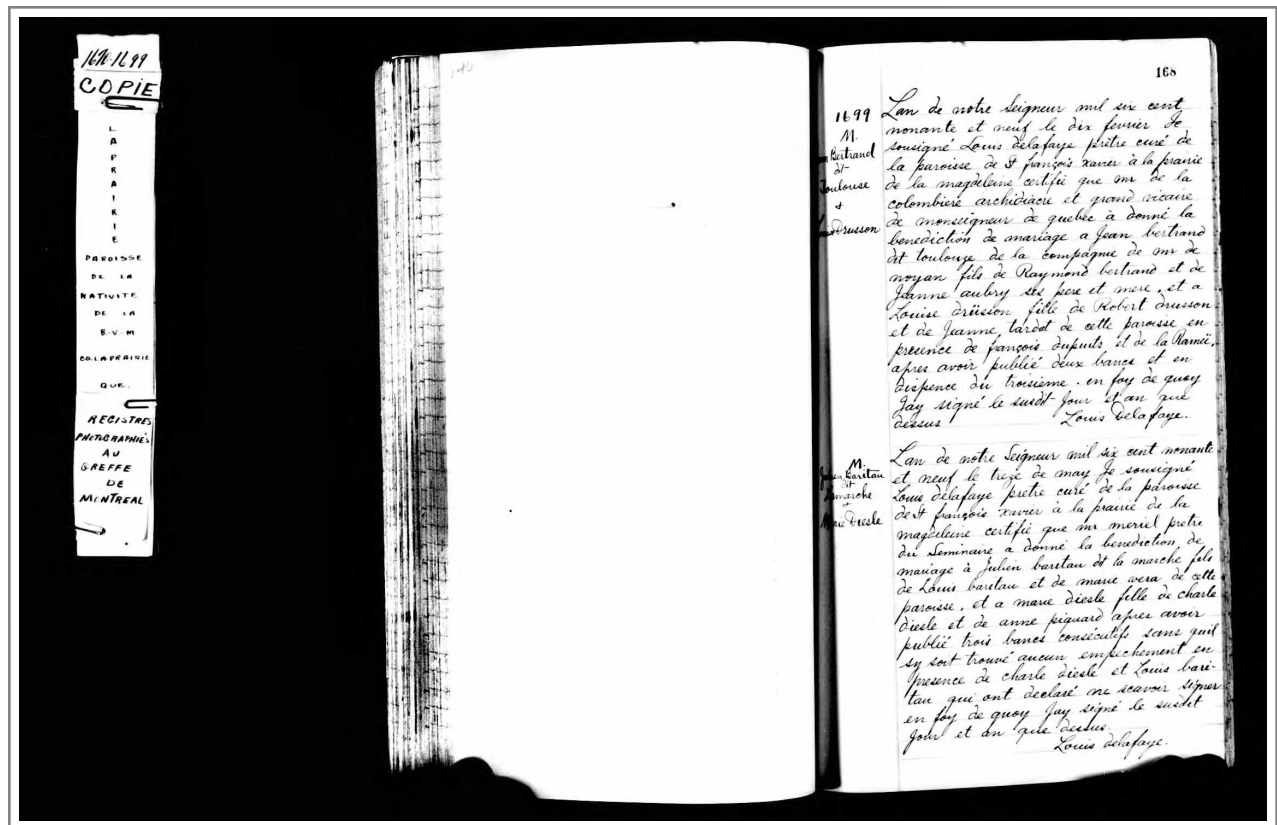 1670-1699
COPIE
LAPRAIRIE
PAROISSE
DE LA
NATIVITE
DE LA
B.V.M
CO. LAPRAIRIE
QUE.
REGISTRES
PHOTOGRAPHIÉS
AU
GREFFE
DE
MONTREAL
168
1699
M.
Bertrand
dit
Toulouse
&
Drusson
Lan de notre Seigneur mil six cent
nonante et neuf le dix fevrier Je
sousigné Louis delafaye prêtre curé de
la paroisse de St françois xavier à la prairie
de la magdeleine certifie que mr de la
colombiere archidiacre et grand vicaire
de monseigneur de quebec à donné la
benediction de mariage a Jean bertrand
dit toulouze de la compagnie de mr de
noyan fils de Raymond bertrand et de
Jeanne aubry ses pere et mere, et a
Louise drüsson fille de Robert drusson
et de Jeanne tardot de cette paroisse en
presence de françois dupuits et de la Rameé,
apres avoir publié deux bancs et en
dispence du troisieme. en foy de quoy
Jay signé le susdit Jour et an que
dessus Louis Delafaye.
M.
Julien Baritau
dit
Lamarche
Marie Diesle
Lan de notre Seigneur mil six cent nonante
et neuf le treze de may Je sousigné
Louis delafaye prêtre curé de la paroisse
de St françois xavier à la prairie de la
magdeleine certifie que mr meriel prêtre
du Seminaire a donné la benediction de
mariage à Julien baritau dit la marche fils
de Louis baritau et de marie vera de cette
paroisse, et a marie diesle fille de charle
diesle et de anne piquard apres avoir
publié trois bancs consécutifs sans quil
sy soit trouvé aucun empechement en
presence de charle diesle et Louis bari-
tau qui ont declaré ne scavoir signer
en foy de quoy Jay signé le susdit
Jour et an que dessus.
Louis delafaye.